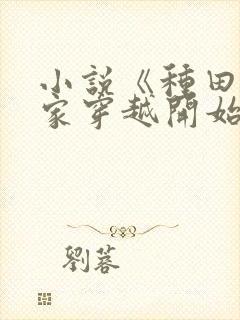 小說《種田
家穿越開始
劉蓉